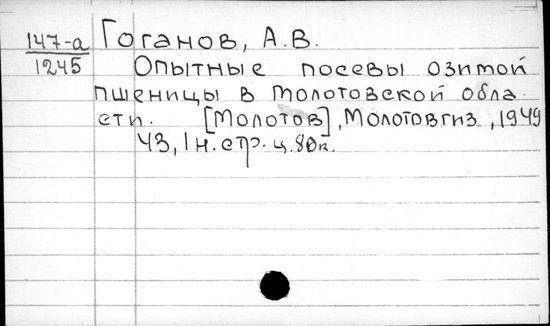 147-а Гоганов, А.В.
1245 Опытные посевы озимой
пшеницы в Молотовской обла-
сти. [Молотов], Молотовгиз, 1949
43, 1 н.стр. ц. 80к.